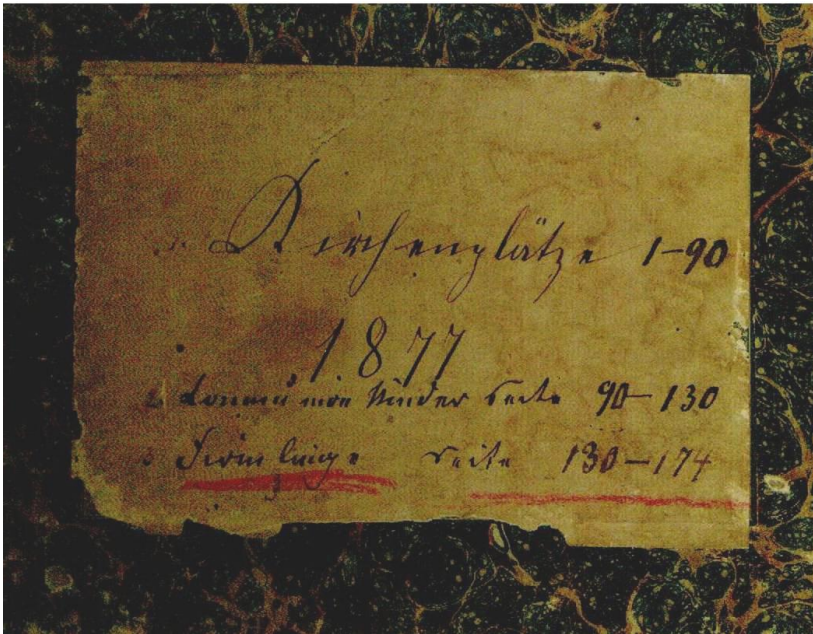 1. Kirchenplätze 1-90
1877
2. Kommunion Kinder Seite 90-130
3 Firmlinge Seite 130-174